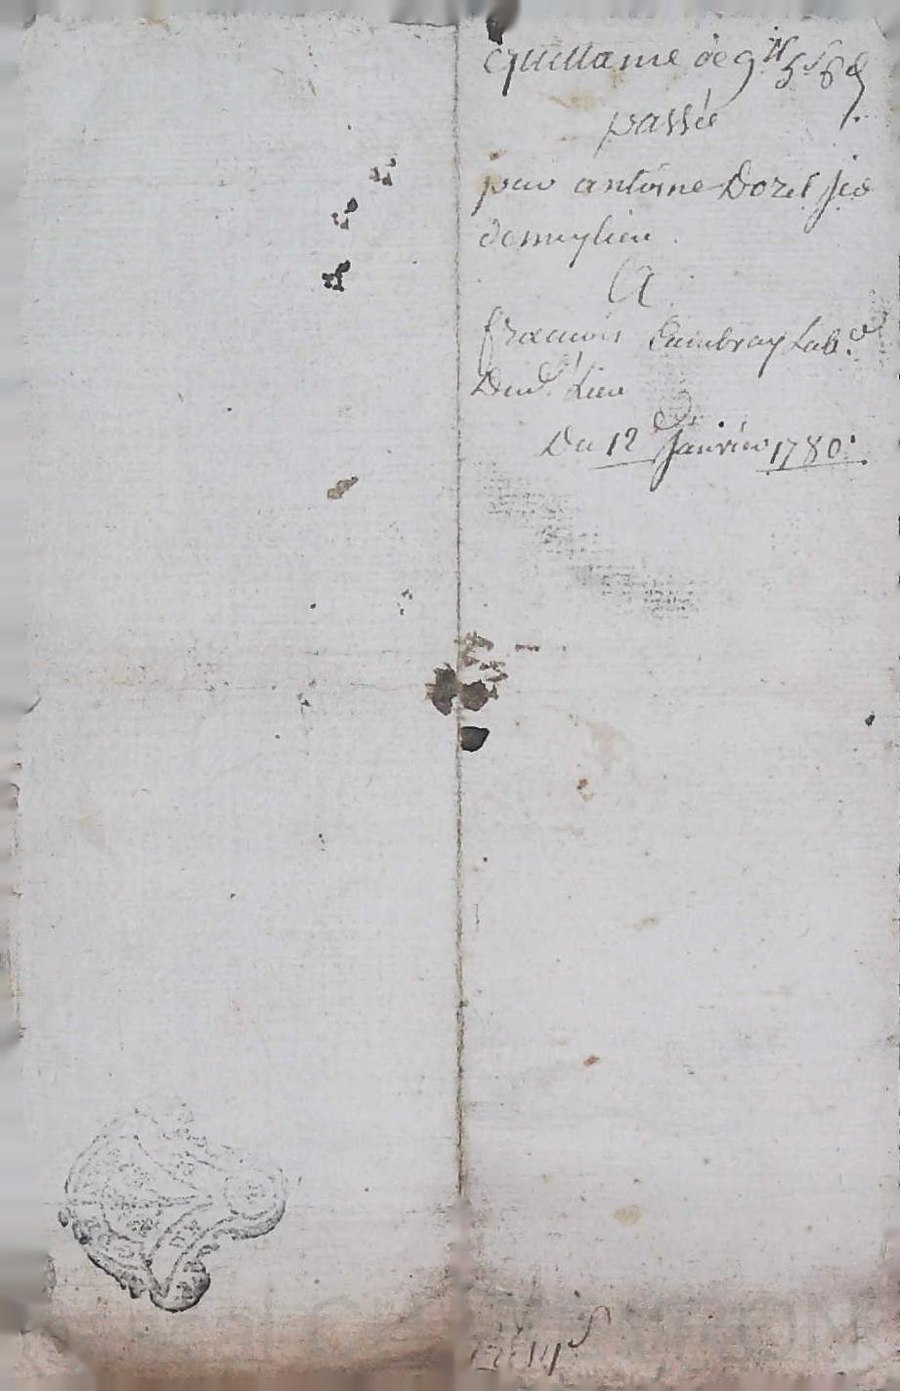 quittance de 9ᵗᵗ 5ˢ 6ᵈ
passée
par antoine Dozel
A
françois Cambray Lab.ʳ
Dud. Lieu
Du 12 Janvier 1780.